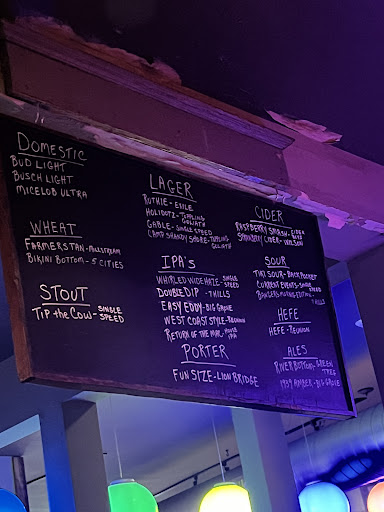 DOMESTIC
BUD LIGHT
BUSCH LIGHT
MICELOB ULTRA
WHEAT
FARMERS TAN - MILLSTREAM
BIKINI BOTTOM - 5 CITIES
STOUT
TIP THE COW - SINGLE SPEED
LAGER
RUTHIE - EXILE
HOLIDUTZ - TOPPLING GOLIATH
GABLE - SINGLE SPEED
CAMP SHANDY SHORE - TOPPLING GOLIATH
IPA'S
WHIRLED WIDE HAZE - SINGLE SPEED
DOUBLE DIP - 7 HILLS
EASY EDDY - BIG GROVE
WEST COAST STYLE - REUNION
RETURN OF THE MAC - HOUSE IPA
PORTER
FUN SIZE - LION BRIDGE
CIDER
RASPBERRY SMASH - CIDER
STRAWBERRY CIDER - WILSON
SOUR
TIKI SOUR - BACKPOCKET
CURRENT EVENTS - SINGLE SPEED
7 HILLS
HEFE
HEFE - REUNION
ALES
RIVER BOTTOMS - GREEN TREE
1939 AMBER - BIG GROVE